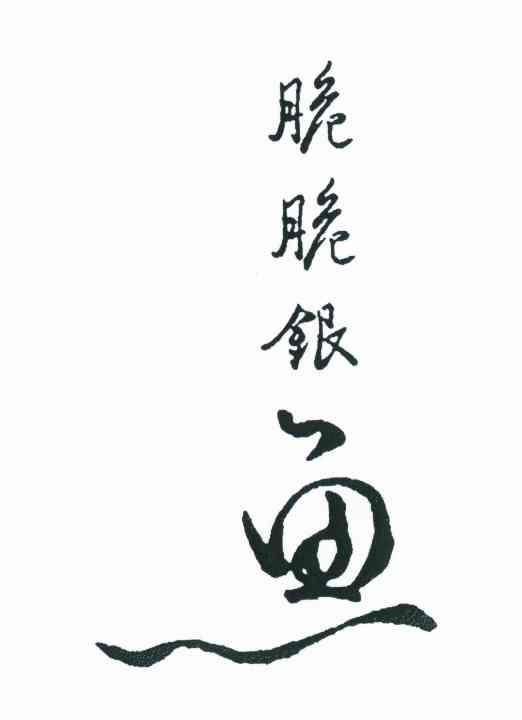 脆脆銀魚